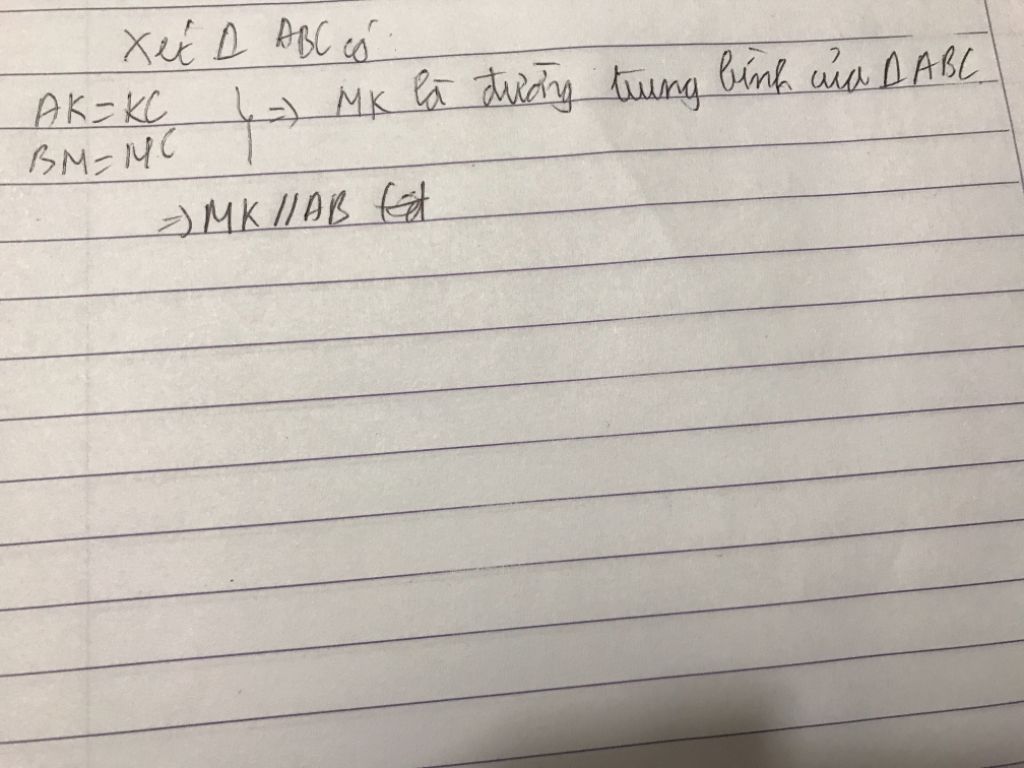 Xét Δ ABC có:
AK = KC } => MK là đường trung bình của Δ ABC
BM = MC
=> MK // AB